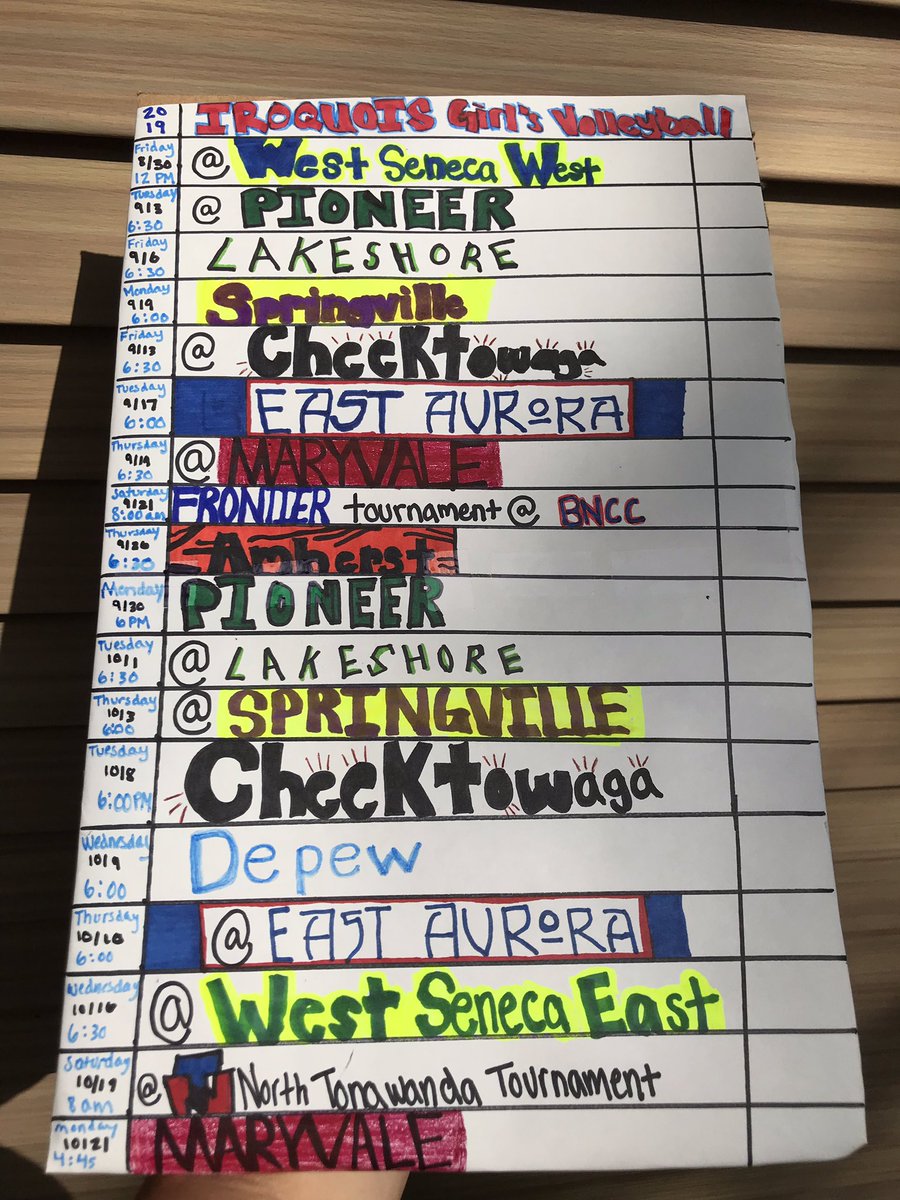 20
19
IROQUOIS Girl's Volleyball
Friday
8/30
12 PM
@ West Seneca West
Tuesday
9/3
6:30
@ PIONEER
Friday
9/6
6:30
LAKESHORE
Monday
9/9
6:00
Springville
Friday
9/13
6:30
@ Cheektowaga
Tuesday
9/17
6:00
EAST AURORA
Thursday
9/19
6:30
@ MARYVALE
Saturday
9/21
8:00am
FRONTIER tournament @ BNCC
Thursday
9/26
6:30
Amherst
Monday
9/30
6PM
PIONEER
Tuesday
10/1
6:30
@ LAKESHORE
Thursday
10/3
6:00
@ SPRINGVILLE
Tuesday
10/8
6:00PM
Cheektowaga
Wednesday
10/9
6:00
Depew
Thursday
10/10
6:00
@ EAST AURORA
Wednesday
10/16
6:30
@ West Seneca East
Saturday
10/19
8am
@ North Tonawanda Tournament
Monday
10/21
4:45
MARYVALE